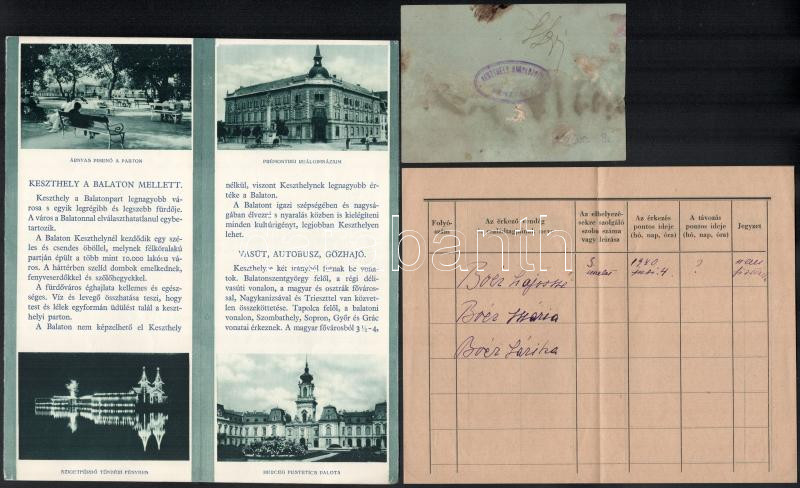 ÁRNYAS PIHENŐ A PARTON
KESZTHELY A BALATON MELLETT.
Keszthely a Balatonpart legnagyobb város
s egyik legrégibb és legszebb fürdője.
A város a Balatonnal elválaszthatatlanul egybetartozik.
A Balaton Keszthelynél kezdődik egy széles
és csendes öböllel, melynek félköralakú
partján terül el a több mint 10.000 lakósu város.
A háttérben szelíd dombok emelkednek,
fenyveserdőkkel és szőlőhegyekkel.
A fürdőváros éghajlata kellemes és egészséges.
Víz és levegő összhatása teszi, hogy
test és lélek egyformán üdülést talál a keszthelyi
parton.
A Balaton nem képzelhető el Keszthely
SZIGETFÜRDŐ TÜNDÉRI FÉNYBEN
PRÉMONTREI REÁLGIMNÁZIUM
nélkül, viszont Keszthelynek legnagyobb értéke
a Balaton.
A Balatont igazi szépségében és nagyságában
élvezni s nyaralás közben is kielégíteni
minden kultúrigényt, legjobban Keszthelyen
lehet.
VASÚT, AUTOBUSZ, GŐZHAJÓ.
Keszthely két irányból futnak be vonatok.
Balatonszentgyörgy felől, a régi délivasúti
vonalon, a magyar és osztrák fővárossal,
Nagykanizsával és Trieszttel van közvetlen
összeköttetése. Tapolca felől, a balatoni
vonalon, Szombathely, Sopron, Győr és Grác
vonatai érkeznek. A magyar fővárosból 3½-4½
HERCEG FESTETICS PALOTA
KESZTHELY
Folyószám
Az érkező vendég
családtagjainak neve
Az elhelyezésekre szolgáló
szoba száma
vagy leírása
Az érkezés
pontos ideje
(hó, nap, óra)
A távozás
pontos ideje
(hó, nap, óra)
Jegyzet
Boér Lajosné 3. 1940 ?
Boér Mária
Boér Sárika
darabanth